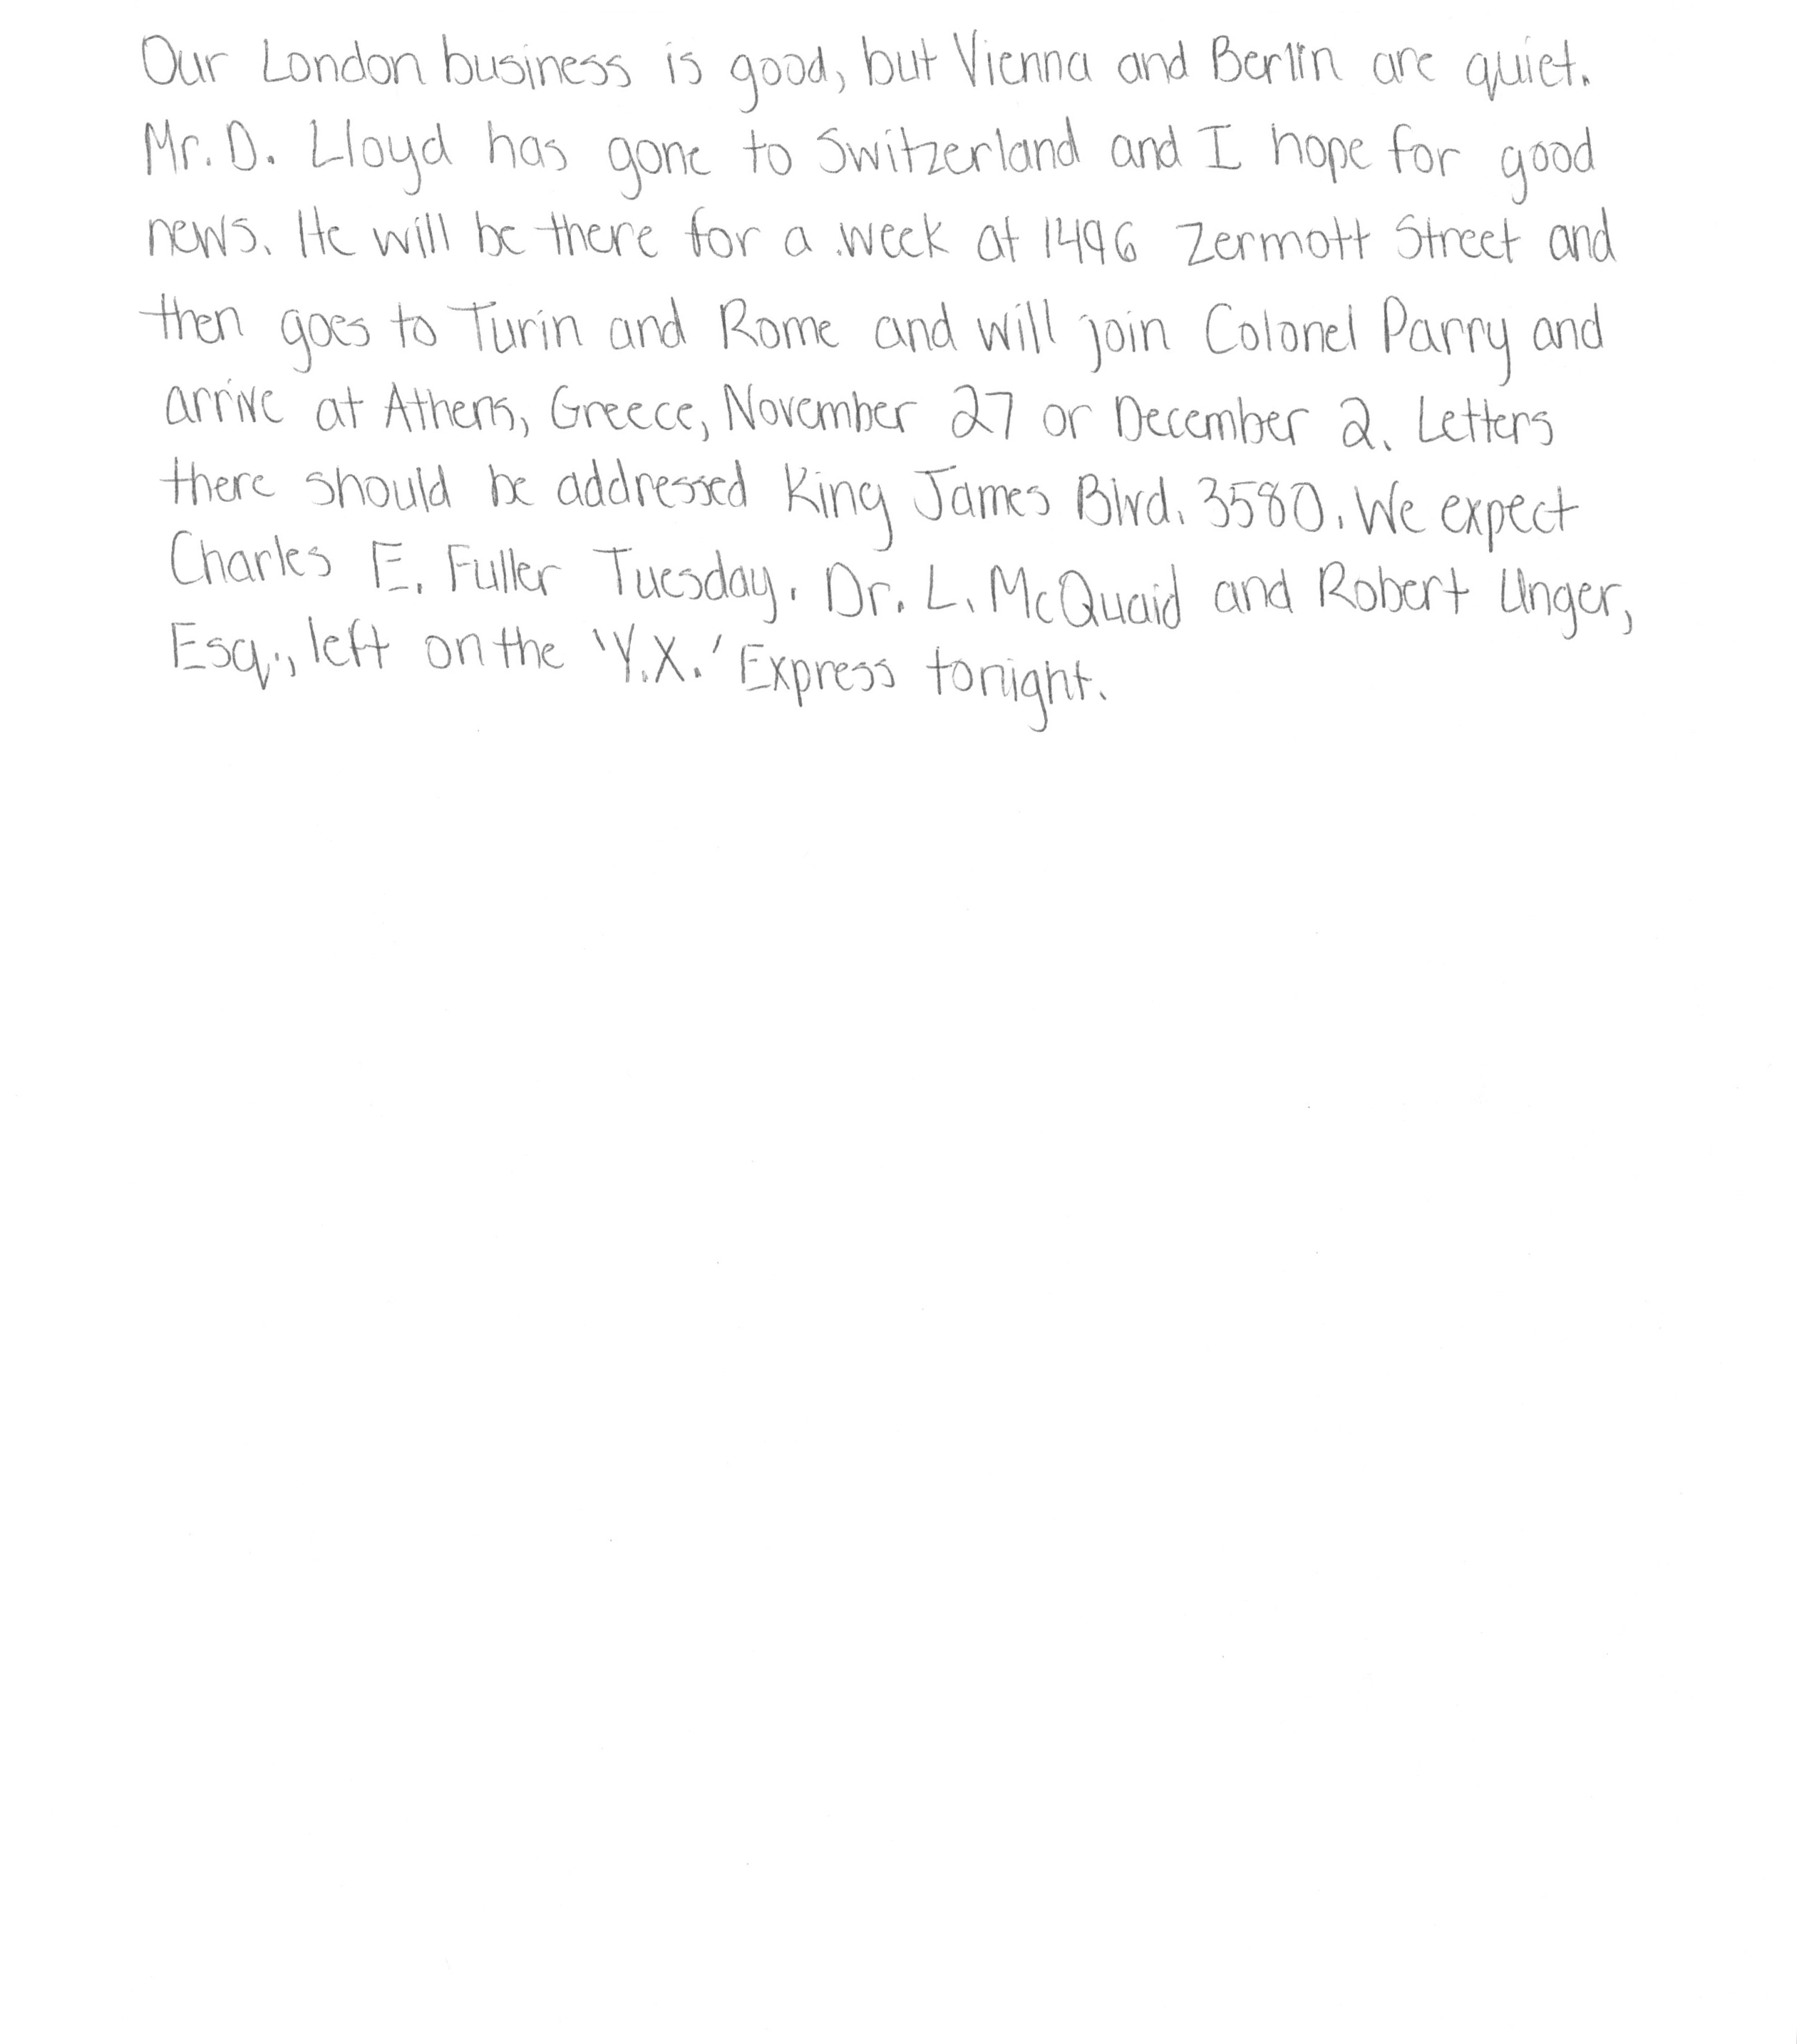 Our London business is good, but Vienna and Berlin are quiet.
Mr. D. Lloyd has gone to Switzerland and I hope for good
news. He will be there for a week at 1496 Zermott Street and
then goes to Turin and Rome and will join Colonel Parry and
arrive at Athens, Greece, November 27 or December 2. Letters
there should be addressed King James Blvd. 3580. We expect
Charles E. Fuller Tuesday. Dr. L. McQuaid and Robert Unger,
Esq., left on the 'Y.X.' Express tonight.